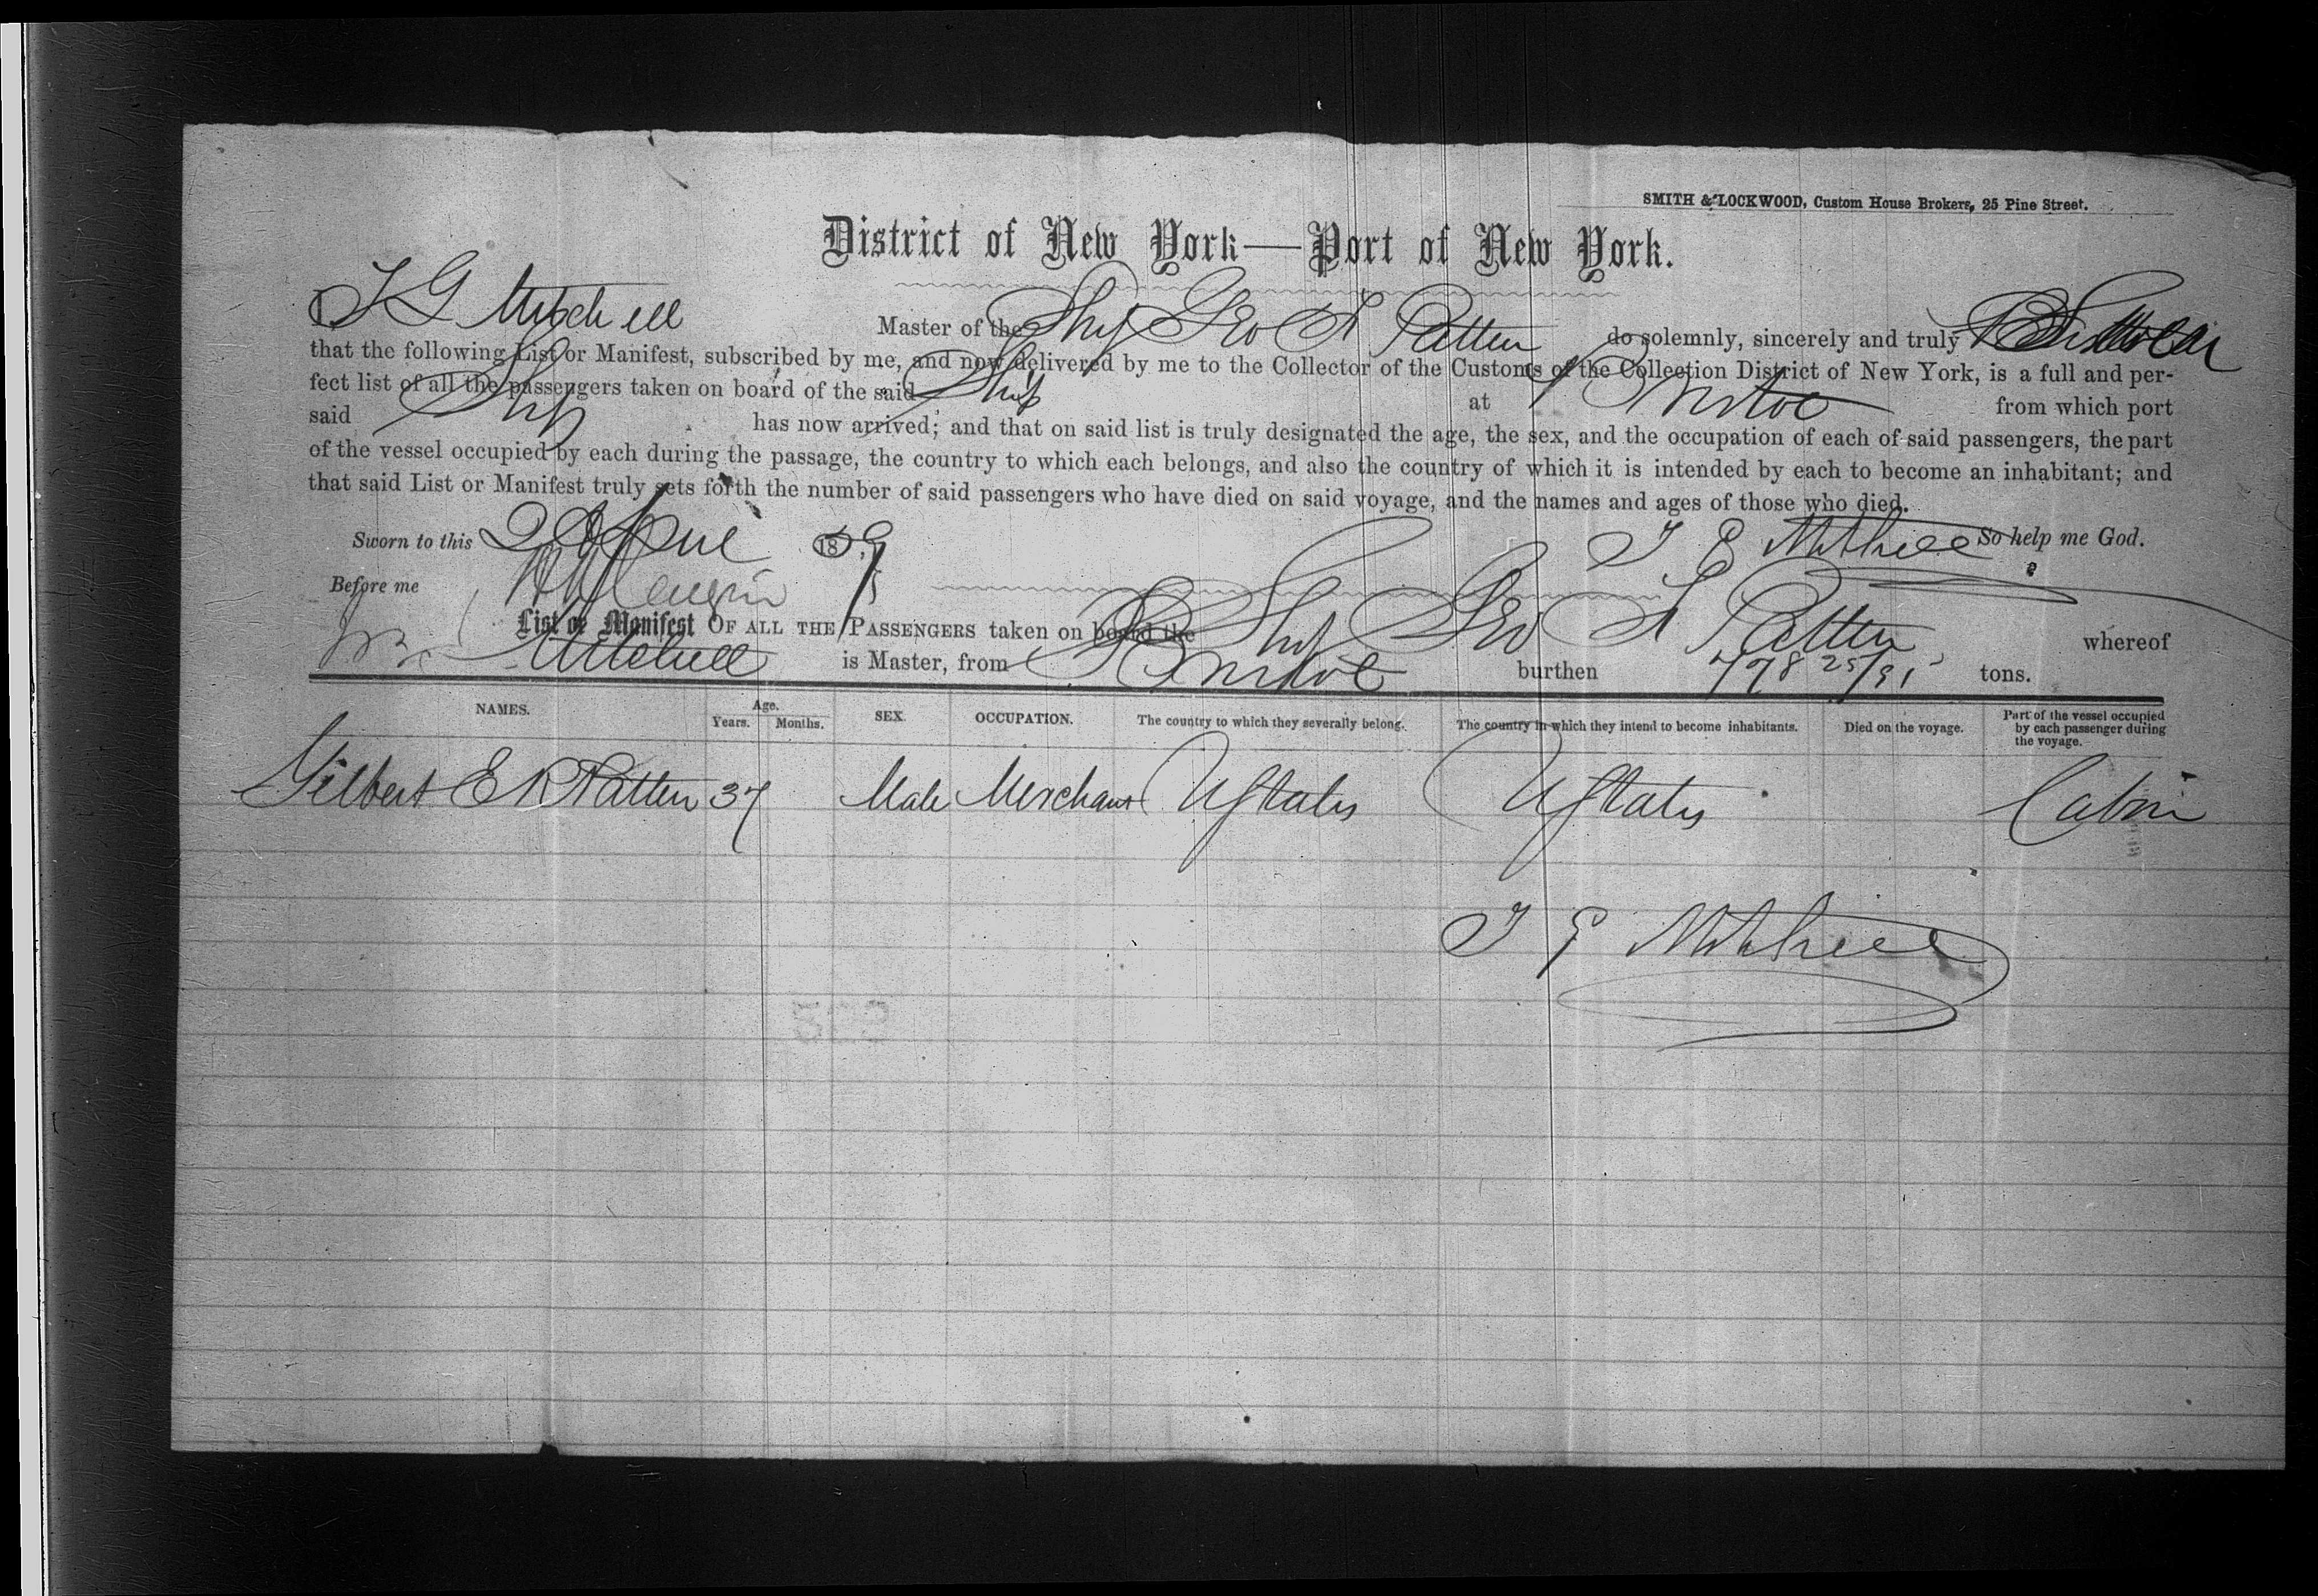 SMITH & LOCKWOOD, Custom House Brokers, 25 Pine Street.
District of New York—Port of New York.
I Mitchell Master of the Ship Geo F Patten do solemnly, sincerely and truly
that the following List or Manifest, subscribed by me, and now delivered by me to the Collector of the Customs of the Collection District of New York, is a full and per-
fect list of all the passengers taken on board of the said Ship at Bristol from which port
said Ship has now arrived; and that on said list is truly designated the age, the sex, and the occupation of each of said passengers, the part
of the vessel occupied by each during the passage, the country to which each belongs, and also the country of which it is intended by each to become an inhabitant; and
that said List or Manifest truly sets forth the number of said passengers who have died on said voyage, and the names and ages of those who died.
Sworn to this 2 April 1859 T E Mitchell So help me God.
Before me
List or Manifest OF ALL THE PASSENGERS taken on board the Ship Geo F Patten whereof
Mitchell is Master, from Bristol burthen 778 25/95 tons.
NAMES. Age. Years. Months. SEX. OCCUPATION. The country to which they severally belong. The country in which they intend to become inhabitants. Died on the voyage. Part of the vessel occupied by each passenger during the voyage.
Gilbert E R Patten 37 Male Merchant UStates UStates Cabin
T E Mitchell